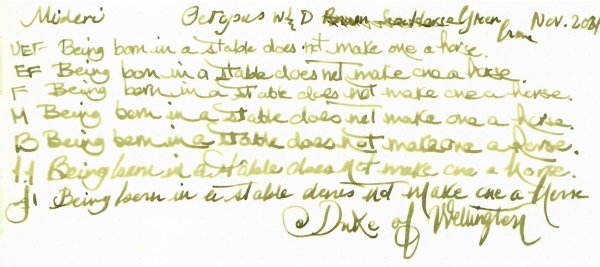 Mideri Octopus W&D Green from Nov. 2021
UEF Being born in a stable does not make one a horse.
EF Being born in a stable does not make one a horse.
F Being born in a stable does not make one a horse.
M Being born in a stable does not make one a horse.
B Being born in a stable does not make one a horse.
1.1 Being born in a stable does not make one a horse.
J1 Being born in a stable denis not make one a Horse
Duke of Wellington